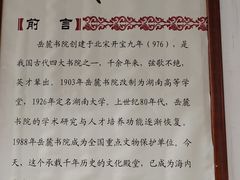 前言
岳麓书院创建于北宋开宝九年（976），是
我国古代四大书院之一，千余年来，弦歌不绝，
英才辈出。1903年岳麓书院改制为湖南高等学
堂，1926年定名湖南大学。上世纪80年代，岳麓
书院的学术研究与人才培养功能逐渐恢复。
1988年岳麓书院成为全国重点文物保护单位。今
天，这个承载千年历史的文化殿堂，已成为海内